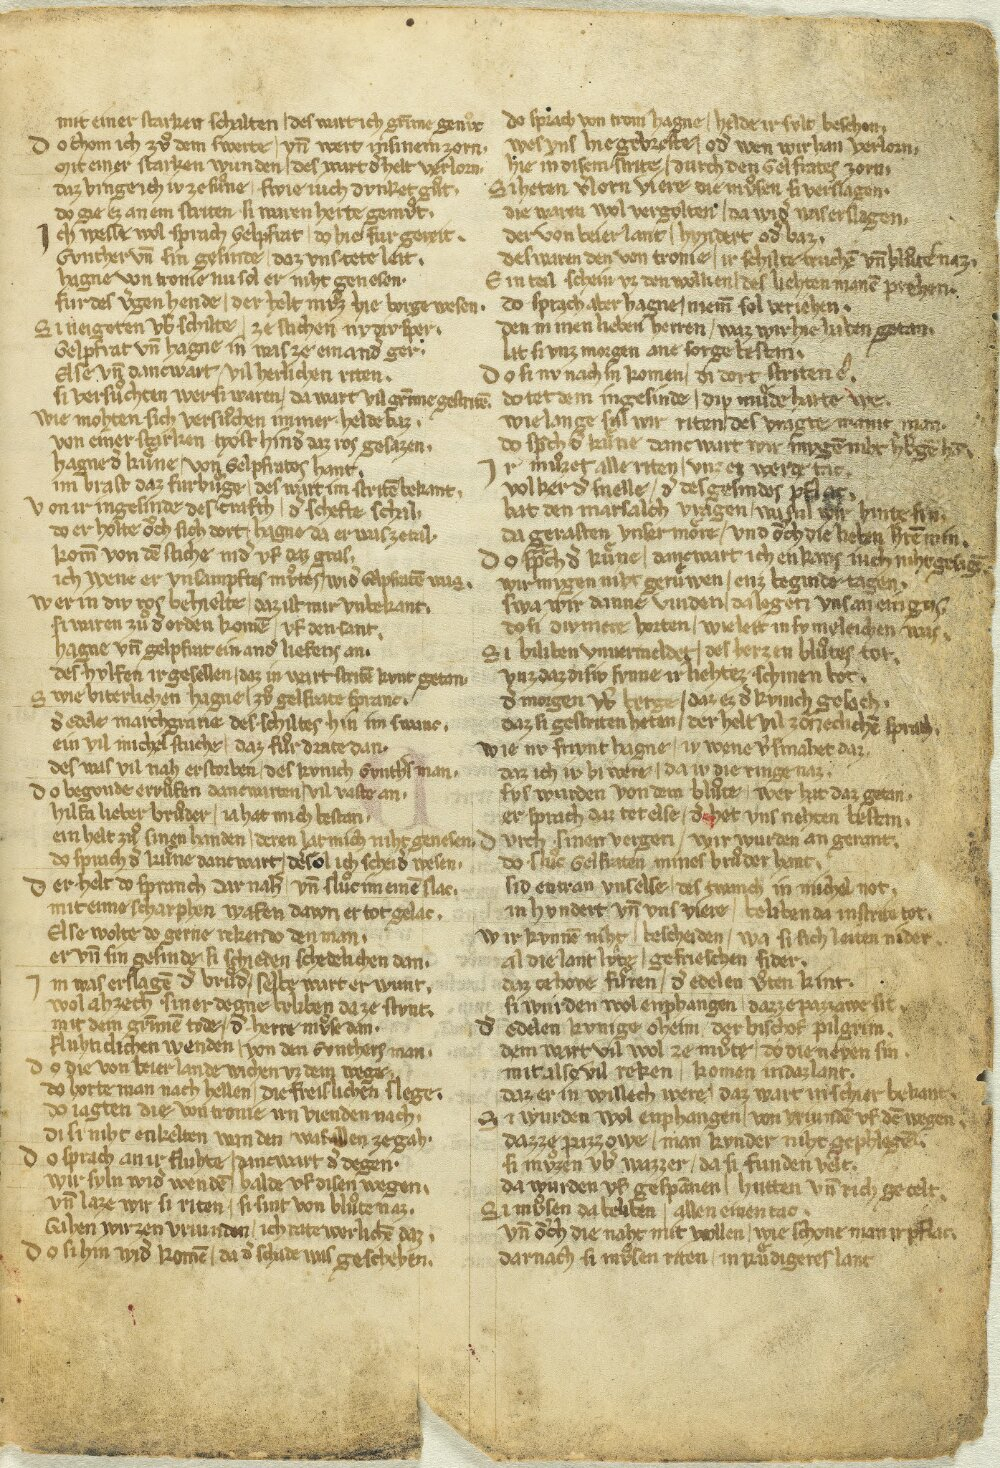 mit einer starken schalten / des wart ich grimme genot
D o chom ich zv dem swerte / vn̄ wert in sinem zorn.
mit einer starken wunden / des wart d᾽ helt verlorn.
daz bringe ich iv ze sůne / swie iuch dvnket gůt.
do gie ez an ein striten / si waren herte gemůt.
I ch weste wol sprach Gelpfrat / do hie fur gereit.
Gunther vn̄ sin gesinde / daz vns tete leit.
hagne von tronie nu sol er niht genesen.
fur des vergen hende / der helt mvz hie borge wesen.
S i neigoten vb᾽ schilte / ze stichen nv div sper.
Gelpfrat vn̄ hagne in was ze einand᾽ ger.
Else vn̄ dancwart / vil herlichen riten.
si versůchten wer si waren / da wart vil grimme gestriten.
Wie mohten sich versůchen immer helde baz.
von einer starken tyost hind᾽ daz ros gesazen.
hagne d᾽ kůne / von Gelpfrates hant.
im brast daz furbůge / des wart im striten bekant.
V on ir ingesinde des craft / d᾽ schefte schal.
do er holte ǒch sich dort / hagne da er was ze tal.
kom von dē stiche nid᾽ vf daz gras.
ich wene er vnsampftes můtes / wid᾽ Gelpfraten was.
W er in div ros behielte / daz ist mir vnbekant.
si waren zů d᾽ erden komē / vf den sant.
hagne vn̄ gelpfrat ein and᾽ liefens an.
des hulfen ir gesellen / daz in wart striten kunt getan.
S wie biterlichen hagne / zv gelfrate spranc.
d᾽ edele marchgrave des schiltes hin im swanc.
ein vil michel stuche / daz fůr drate dan.
des was vil nah erstorben / des kvnich Gvnth᾽s man.
D o begonde er růfen dancwarten / vil vaste an.
hilfa lieber brůder / ia hat mich bestan.
ein helt zů sinen handen / deren lat mich niht genesen.
do sprach d᾽ kůne dancwart / des sol ich scheid᾽ wesen.
D er helt do spranch dar nah᾽ / vn̄ slůc im einē slac.
mit eime scharpfen wafen dauon er tot gelac.
Else wolte do gerne rekendo den man.
er vn̄ sin gesinde / si schieden schedelichen dan.
I m was erslagē d᾽ brůd᾽ / selbe wart er wunt.
wol ahzech siner degne beliben da ze stunt.
mit dem grimmē tode / d᾽ herre můse dan.
fluhticlichen wenden / von den Gvnthers man.
D o die von beier lande wichen vz dem wege.
do horte man nach hellen / die freislichen slege.
do iagten die von tronie irn vienden nach.
di si niht enkelten wanden was allen ze gah.
D o sprach an ir fluhte / dancwart d᾽ degen.
wir suln wid᾽ wenden / balde vf disen wegen.
vn̄ laze wir si riten / si sint von blůte naz.
Gahen wir zen vriunden / ich rate werlichē daz.
D o si hin wid᾽ komē / da d᾽ schade was geschehen.
do sprach von troni hagne / helde ir sult beschon.
wes vns hie gebreste / od᾽ wen wir han verlorn.
hie in disem strite / durch den Gelfrates zorn.
S i heten v᾽lorn viere die můsen si verclagen.
die waren wol vergolten / da wid᾽ was erslagen.
der von beier lant / hvndert od᾽ baz.
des waren den von tronie / ir schilte truebe vn̄ blůte naz.
E in teil schein vz den wolken / des liehten manen prehen.
do sprach aber hagne / niemē sol veriehen.
den minen lieben herren / waz wir hie haben getan.
lat si vnz morgen ane sorge bestan.
D o si nv nach in komen / di dort striten ê.
do tet dem ingesinde / div můde harte we.
wie lange sul wir riten / des vragte manic man.
do sp᾽ch d᾽ kůne dancwart wir mugē niht h᾽b᾽ge hā.
I r můzet alle riten / vnz ez werde tac.
volker d᾽ snelle / d᾽ des gesindes pflac.
bat den marsalch vragen / wa sul wir hinte sin.
da gerasten vnser more / vnd ǒch die lieben h᾽ren min.
D o sp᾽ch d᾽ kůne / dancwart ich enkans iuch niht gesagē.
wir mugen niht gerůwen / enz beginde tagen.
swa wir danne vinden / da leg en vns an ein gras.
do si div mere horten / wie leit in sumelichen was.
S i beliben vnvermeldet / des herzen blůtes rot.
vnz daz div sunne ir liehtez schinen bot.
d᾽ morgen vb᾽ berge / daz ez d᾽ kvnich gesach.
daz si gestriten heten / der helt vil zornechlichē sprach.
Wie nv frivnt hagne / iv wene v᾽smahet daz.
daz ich iv bi were / da iv die ringe naz.
svs wurden von dem blůte / wer hat daz getan.
er sprach daz tet else / d᾽ het vns nehten bestan.
D vrch sinen vergen / wir wurden an gerant.
do slůc Gelfraten mines brůder hant.
sid entran vns else / des twanch in michel not.
in hvndert vn̄ vns viere / beliben da in strite tot.
W ir kvnnē niht / bescheiden / wa si sich leiten nider.
al die lant lvte / gefrieschen sider.
daz ze hove fůren / d᾽ edelen v̊ten kint.
si wurden wol enphangen / dazze pazzawe sit.
D᾽ edelen kvnige oheim / der bischof pilgrim.
dem wart vil wol ze můte / do die neven sin.
mit also vil reken / komen in daz lant.
daz er in willech were / daz wart in schier bekant.
S i wurden wol enphangen / von vriundē vf dē wegen.
dazze pazzowe / man kvnder niht gephlegē.
si můzen vb᾽ wazzer / da si funden velt.
da wurden vf gespannen / hutten vn̄ rich gecelt.
S i můsen da beliben / allen einen tac.
vn̄ ǒch die naht mit vollen / wie schone man ir pflac.
dar nach si můsen riten / in Růdigeres lant